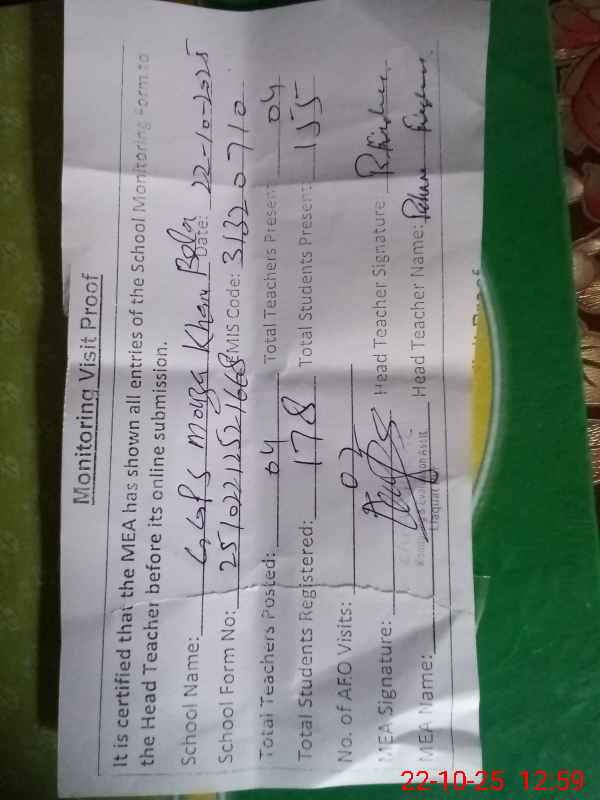 Monitoring Visit Proof
It is certified that the MEA has shown all entries of the School Monitoring Form to
the Head Teacher before its online submission.
School Name: GGPS Mouza Khan Bela Date: 22-10-2025
School Form No: 251022125221668 EMIS Code: 31320710
Total Teachers Posted: 04 Total Teachers Present: 04
Total Students Registered: 178 Total Students Present: 155
No. of AEO Visits: 02
MEA Signature: Head Teacher Signature
MEA Name: Head Teacher Name:
22-10-25 12:59